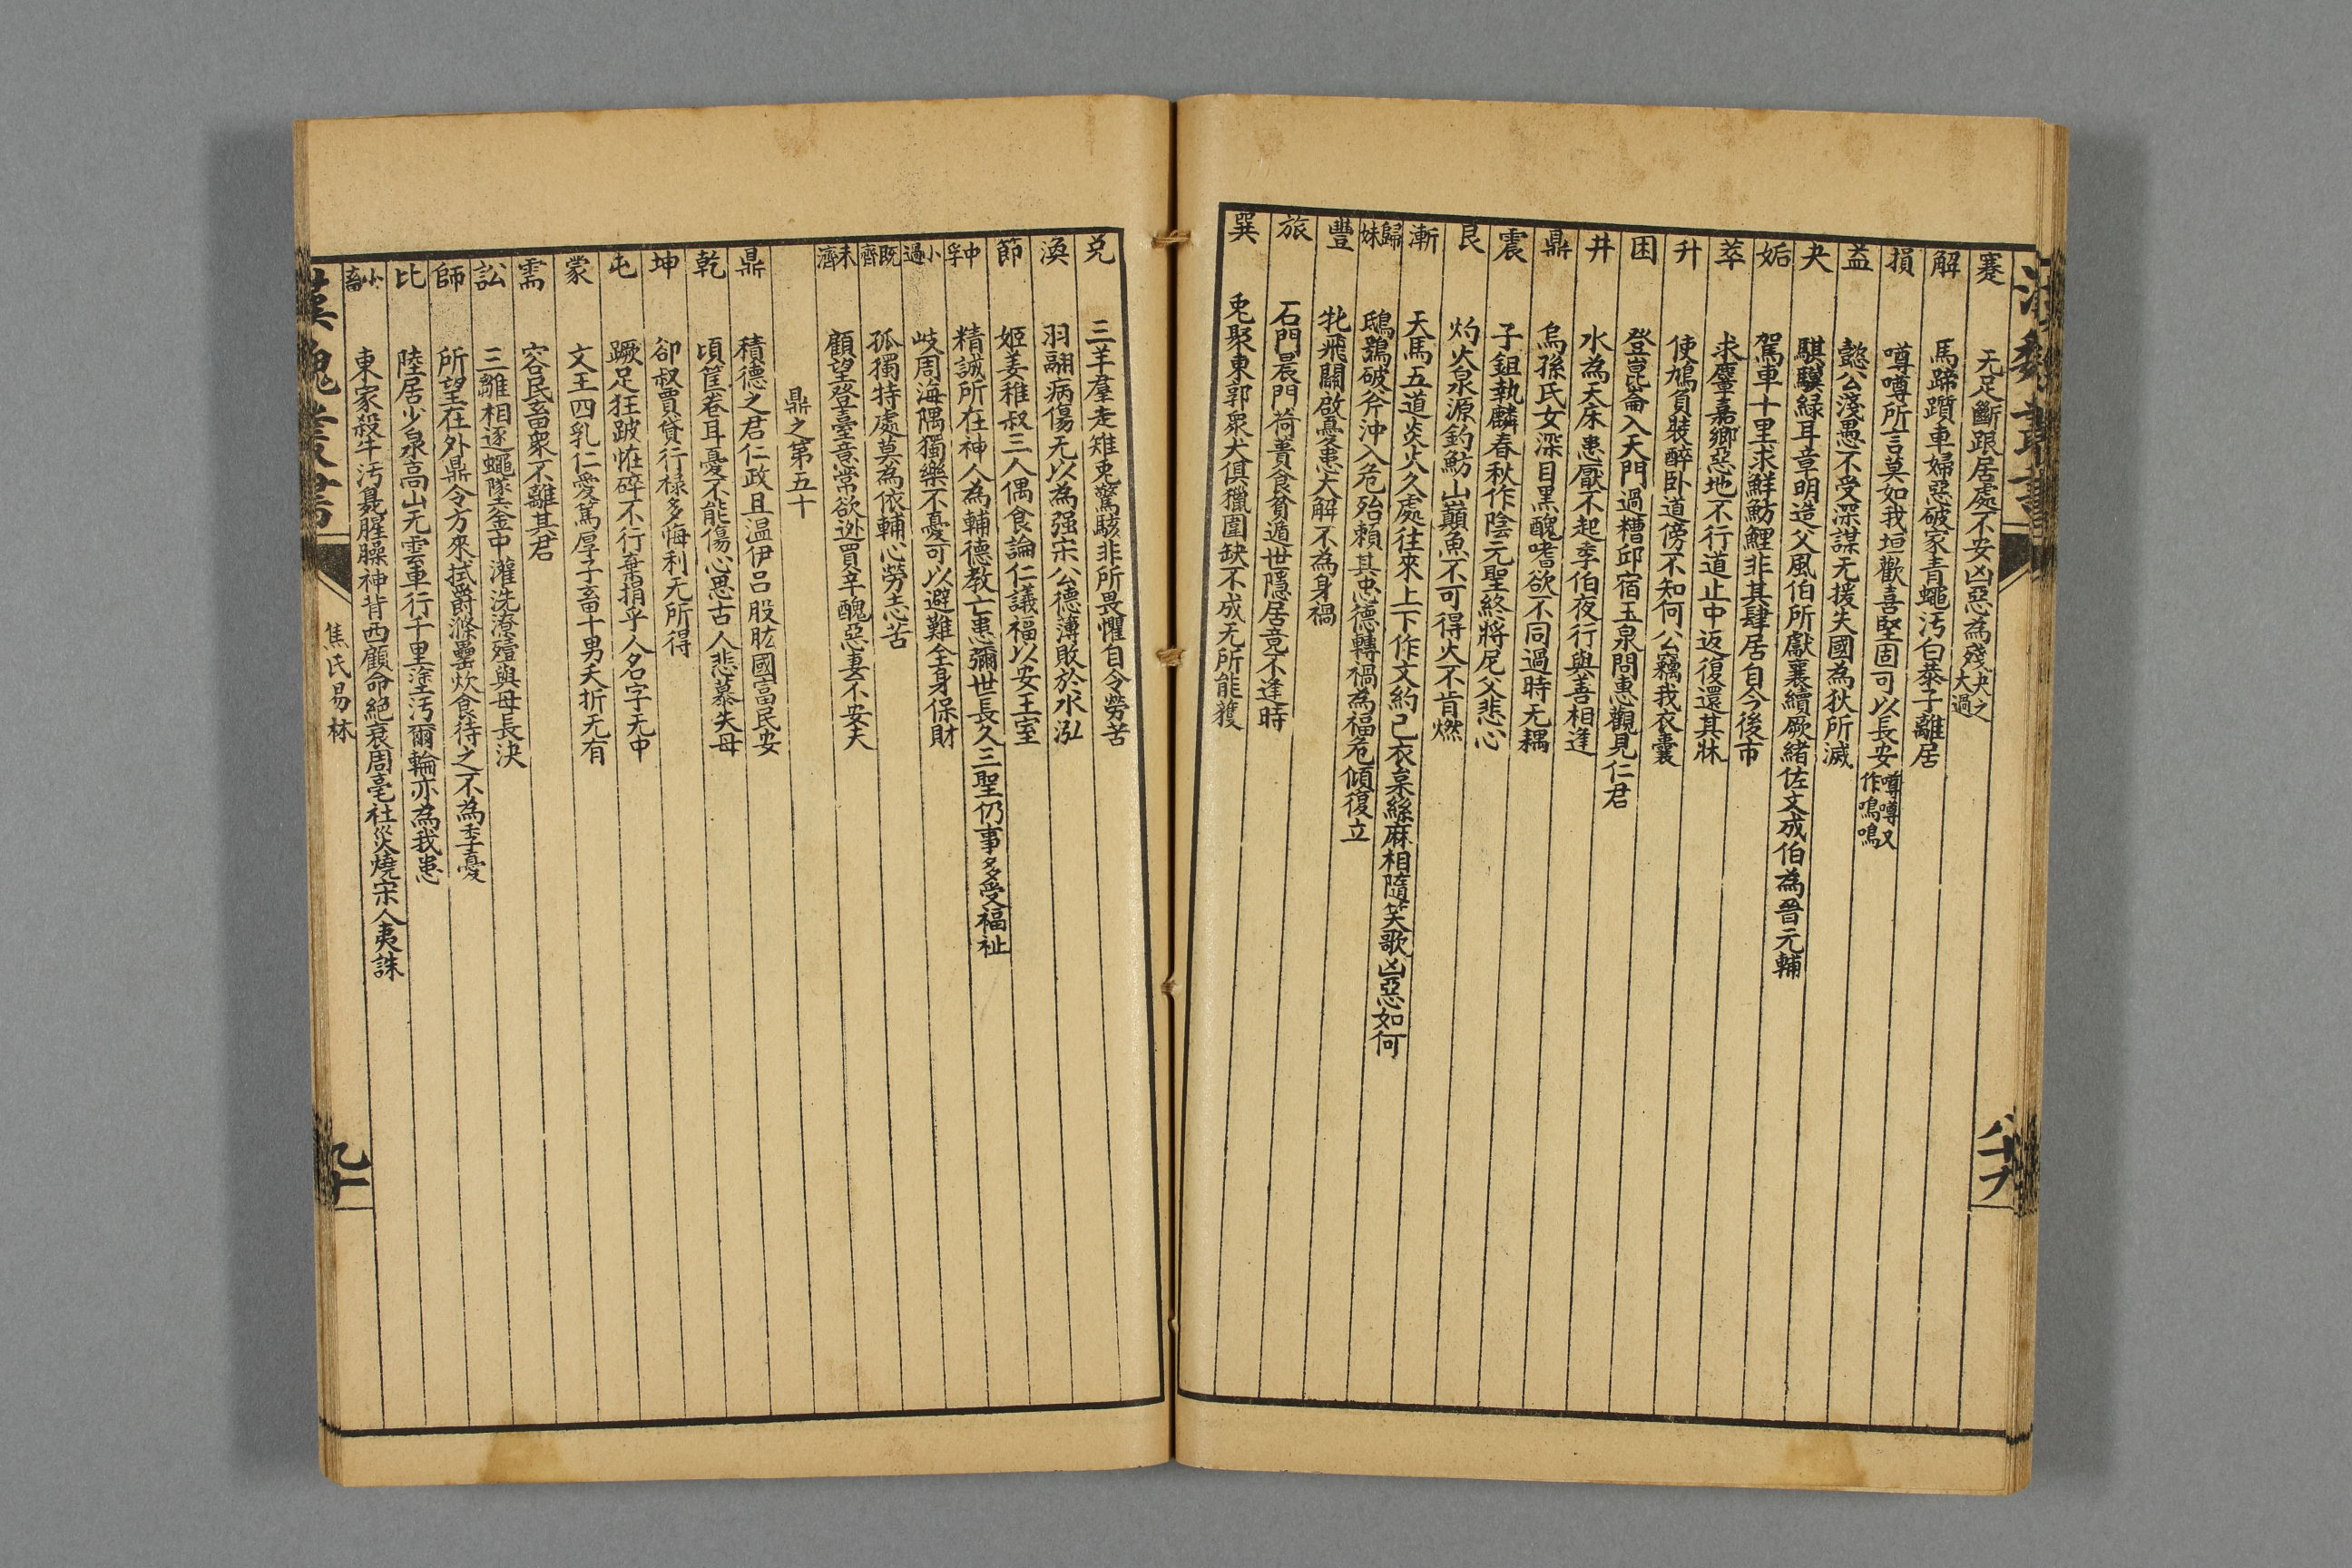 漢魏叢書
八十九
蹇 无足斷跟居處不安凶惡為殘 夬之大過
解 馬蹄躓車婦惡破家青蠅汚白恭子離居
損 噂噂所言莫如我垣歡喜堅固可以長安 噂噂又作鳴鳴
益 懿公淺愚不受深謀无援失國為狄所滅
夬 騏驥緑耳章明造父風伯所獻襄續厥緒佐文成伯為晉元輔
姤 駕車十里求鮮魴鯉非其肆居自今後市
萃 求麞嘉鄉惡地不行道止中返復還其牀
升 使鳩負裝醉卧道傍不知何公竊我衣囊
困 登崑崙入天門過糟邱宿玉泉問惠觀見仁君
井 水為天床患厭不起季伯夜行與善相逢
鼎 烏孫氏女深目黑醜嗜欲不同過時无耦
震 子鉏執麟春秋作陰元聖終將尼父悲心
艮 灼火泉源釣魴山巔魚不可得火不肯燃
漸 天馬五道炎火久處往來上下作文約己衣枲絲麻相隨笑歌凶惡如何
歸妹 鴟鴞破斧沖入危殆賴其忠德轉禍為福危傾復立
豐 牝飛闢啟憂患大解不為身禍
旅 石門晨門荷蕢食貧遁世隱居竟不逢時
巽 兎聚東郭衆犬俱獵圍缺不成无所能獲
兌 三羊羣走雉兎驚駭非所畏懼自令勞苦
渙 羽翮病傷无以為强宋公德薄敗於水泓
節 姬姜稚叔三人偶食論仁議福以安王室
中孚 精誠所在神人為輔德教亡患彌世長久三聖仍事多受福祉
小過 岐周海隅獨樂不憂可以避難全身保財
既濟 孤獨特處莫為依輔心勞志苦
未濟 顧望登臺意常欲逃買辛醜惡妻不安夫
鼎之第五十
鼎 積德之君仁政且温伊呂股肱國富民安
乾 頃筐卷耳憂不能傷心思古人悲慕失母
坤 卻叔賈貸行祿多悔利无所得
屯 蹶足狂跛恠碎不行棄捐乎人名字无中
蒙 文王四乳仁愛篤厚子畜十男夭折无有
需 容民畜衆不離其君
訟 三雛相逐蠅墜釜中灌洗潦殪與母長決
師 所望在外鼎令方來拭爵滌罍炊食待之不為季憂
比 陸居少泉高山无雲車行千里塗汚爾輪亦為我患
小畜 東家殺牛汚臭腥臊神背西顧命絕衰周亳社災燒宋人夷誅
漢魏叢書
焦氏易林
九十